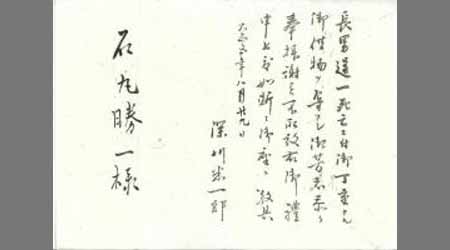 長男一死亡ニ付御丁重ナル
御供物ヲ御芳志
奉謝候不取敢右御禮
申上度如斯ニ御座候 敬具
大正年八月廿九日
深川米一郎
石丸勝一様